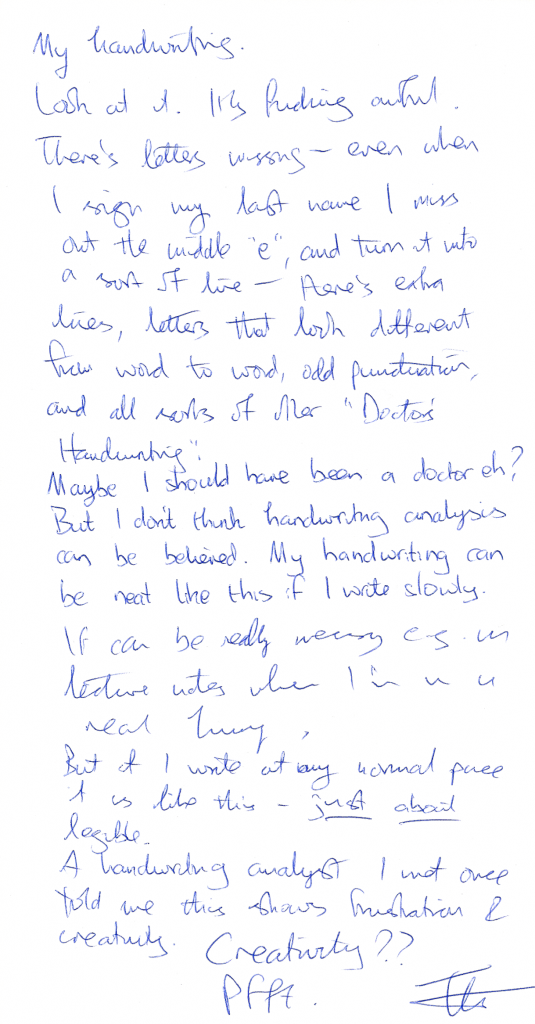 My handwriting.
Look at it. It's fucking awful.
There's letters missing – even when
I sign my last name I miss
out the middle "e", and turn it into
a sort of line – there's extra
lines, letters that look different
from word to word, odd punctuation,
and all sorts of other "Doctor's
Handwriting".
Maybe I should have been a doctor eh?
But I don't think handwriting analysis
can be believed. My handwriting can
be neat like this if I write slowly.
It can be really messy e.g. in
lecture notes when I'm in a
real hurry,
But if I write at my normal pace
it is like this – just about
legible.
A handwriting analyst I met once
told me this shows frustration &
creativity. Creativity??
Pfft.